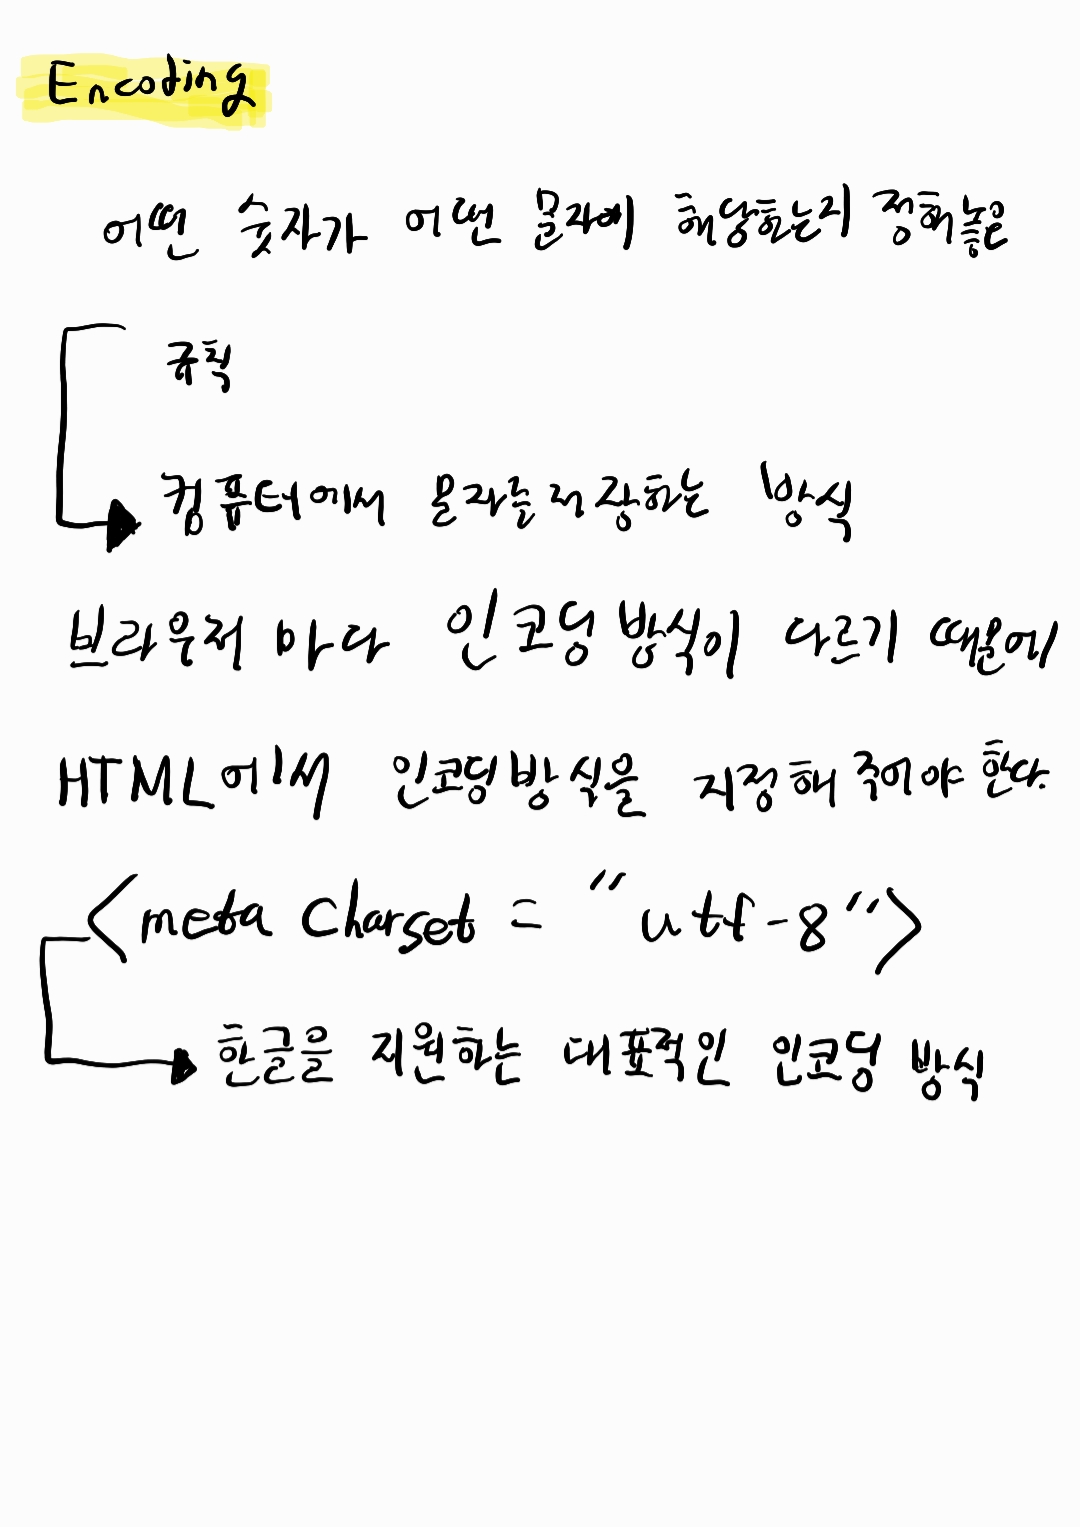 Encoding
어떤 숫자가 어떤 문자에 해당하는지 정해놓은
규칙
컴퓨터에서 문자를 저장하는 방식
브라우저 마다 인코딩 방식이 다르기 때문에
HTML에서 인코딩방식을 지정해 주어야 한다.
<meta charset = "utf-8">
한글을 지원하는 대표적인 인코딩 방식